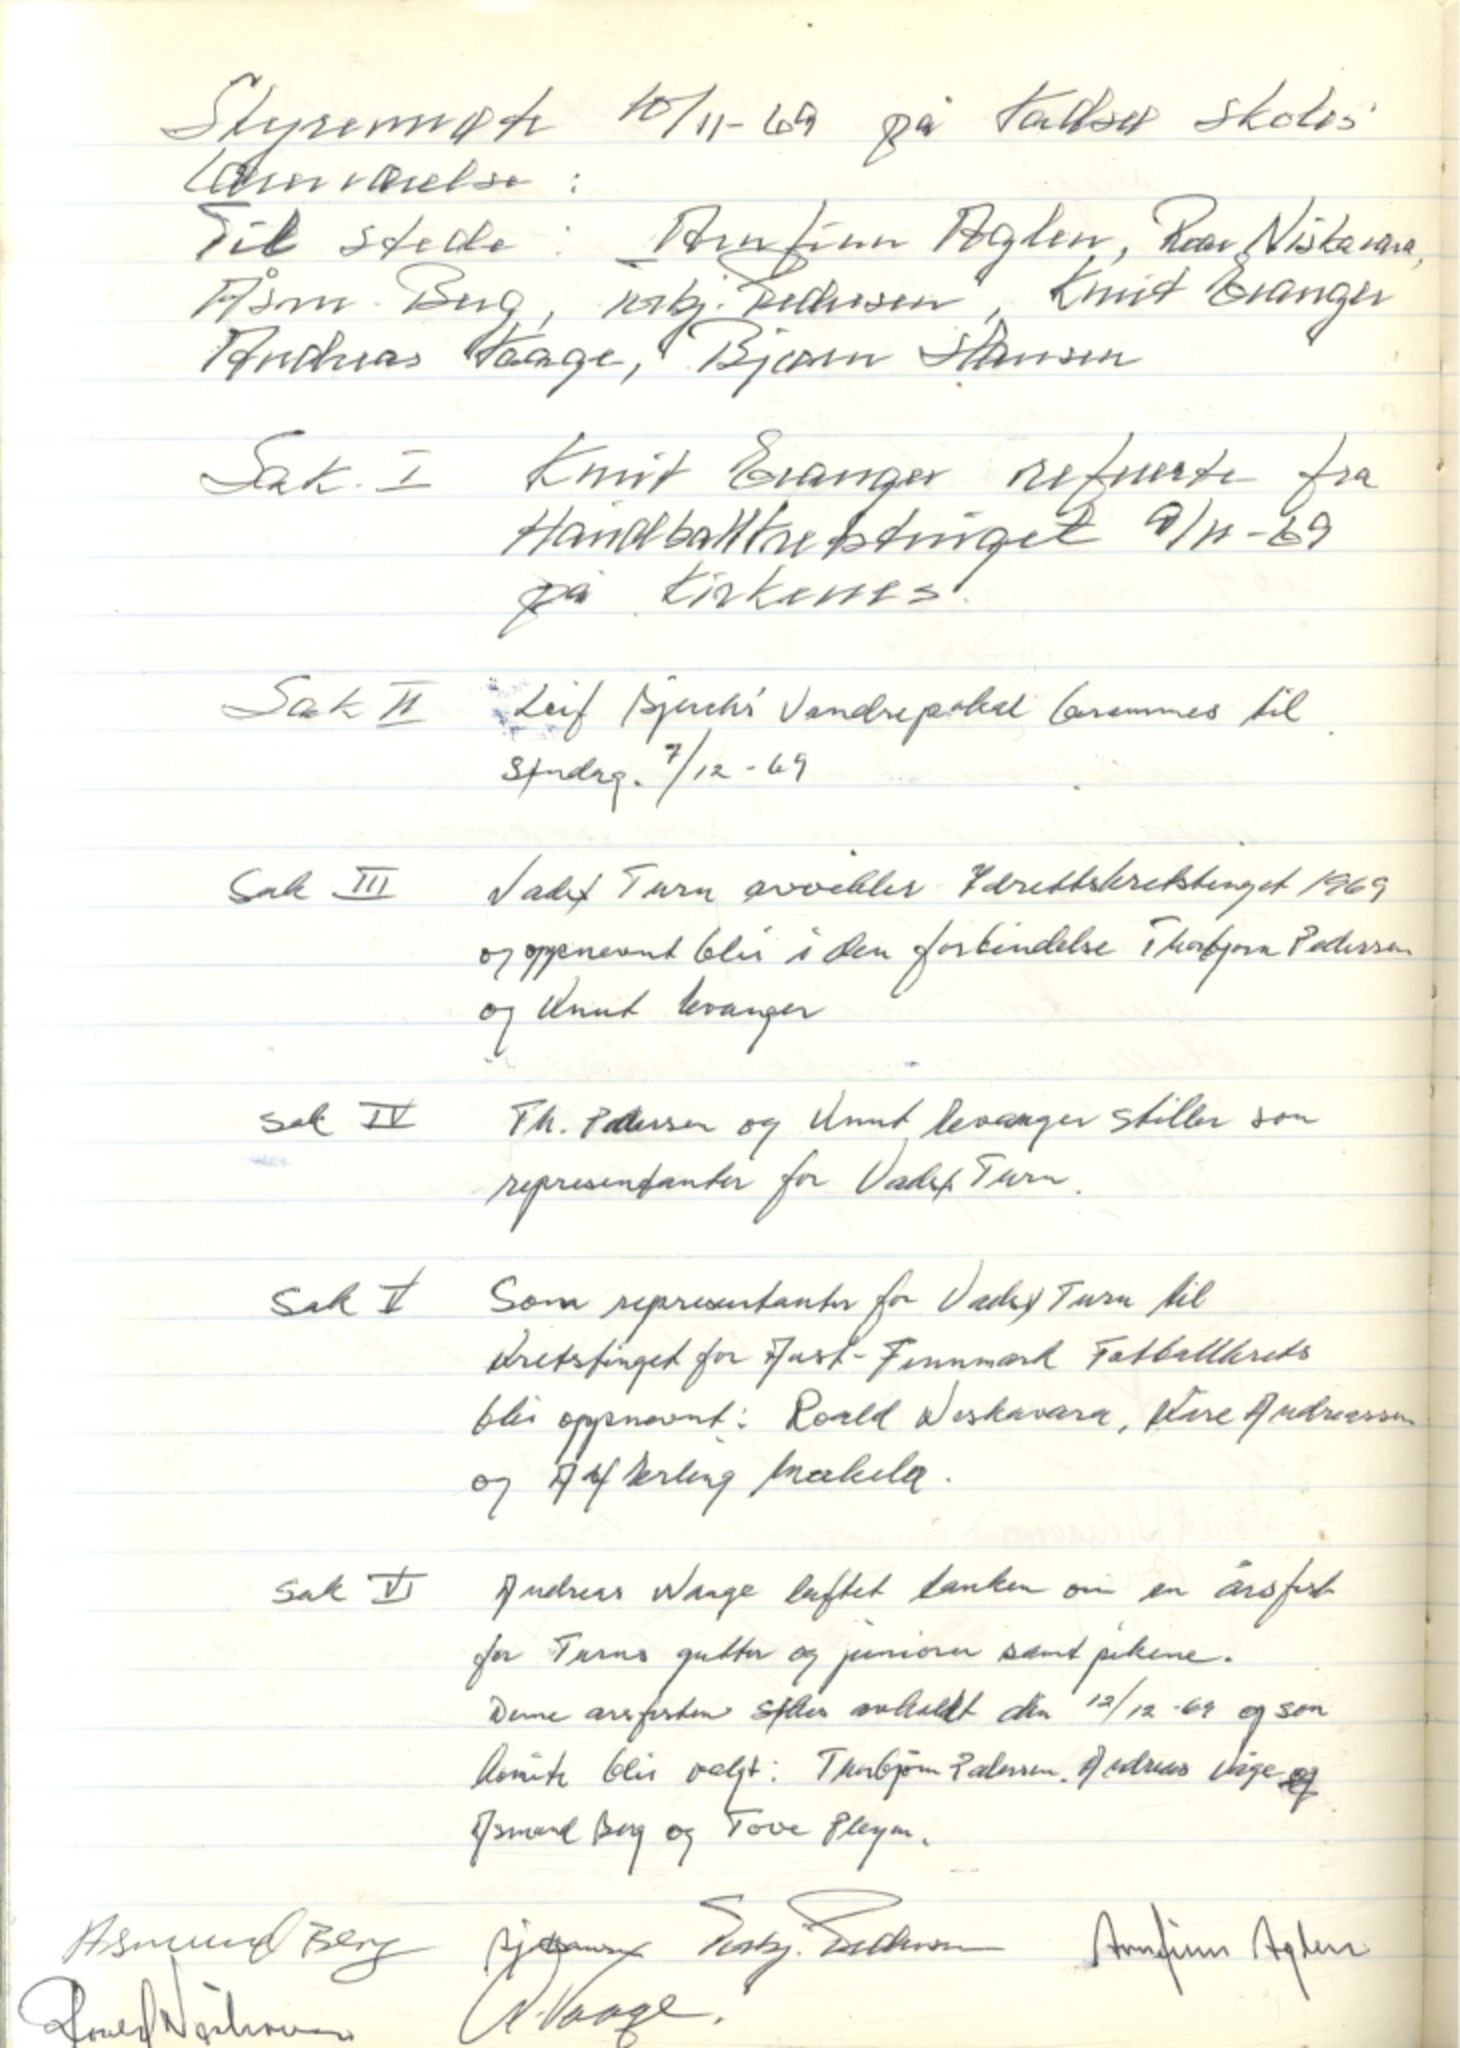 Styremøte 10/11-69 på Vadsø skoles
lærerværelse :
Til stede : Arnfinn Aglen, Roar Niskavara,
Åsm. Berg, Torbj. Pedersen, Knut Evanger
Andreas Vaage, Bjørn Hansen
Sak. I Knut Evanger refererte fra
Håndballkretstinget 9/11-69
på Kirkenes.
Sak II Leif Bjerchs' Vandrepokal berammes til
Søndag. 7/12-69
Sak III Vadsø Turn avvikler Idrettskretstinget 1969
og oppnevnt blir i den forbindelse Thorbjørn Pedersen
og Knut Evanger
Sak IV Th. Pedersen og Knut Evanger stiller som
representanter for Vadsø Turn.
Sak V Som representanter for Vadsø Turn til
Kretstinget for Aust-Finnmark Fotballkrets
blir oppnevnt: Roald Niskavara, Kåre Andreassen
og Alf Erling Makela.
Sak VI Andreas Waage luftet tanken om en årsfest
for Turns gutter og juniorer samt pikene.
Denne årsfesten søkes avholdt den 12/12-69 og som
komite blir valgt: Thorbjørn Pedersen. Andreas Våge og
Åsmund Berg og Tove Pleym.
Åsmund Berg Bj Hansen Torbj. Pedersen Arnfinn Aglen
Roald Niskavara A. Vaage.